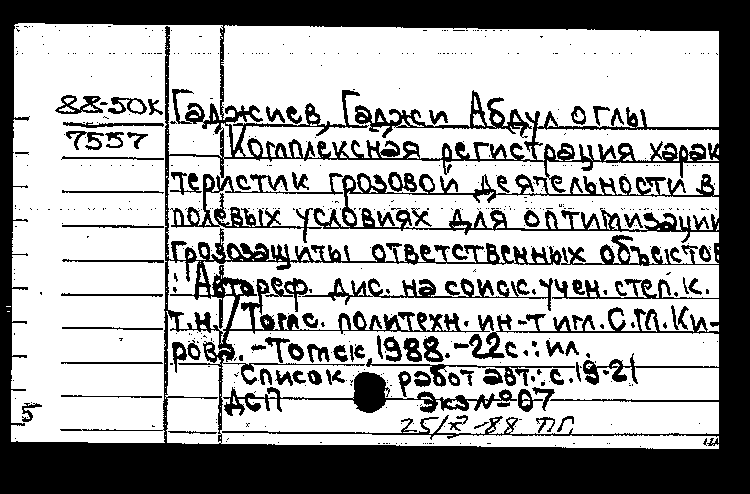 88-50к Гаджиев, Гаджи Абдул оглы
7557 Комплексная регистрация харак
теристик грозовой деятельности в
полевых условиях для оптимизации
грозозащиты ответственных объектов
: Автореф. дис. на соиск. учен. степ. к.
т.н. / Томс. политехн. ин-т им. С.М. Ки-
рова. - Томск, 1988. - 22с. : ил.
Список работ авт.: с.19-21
ДСП Экз №07
25/X-88